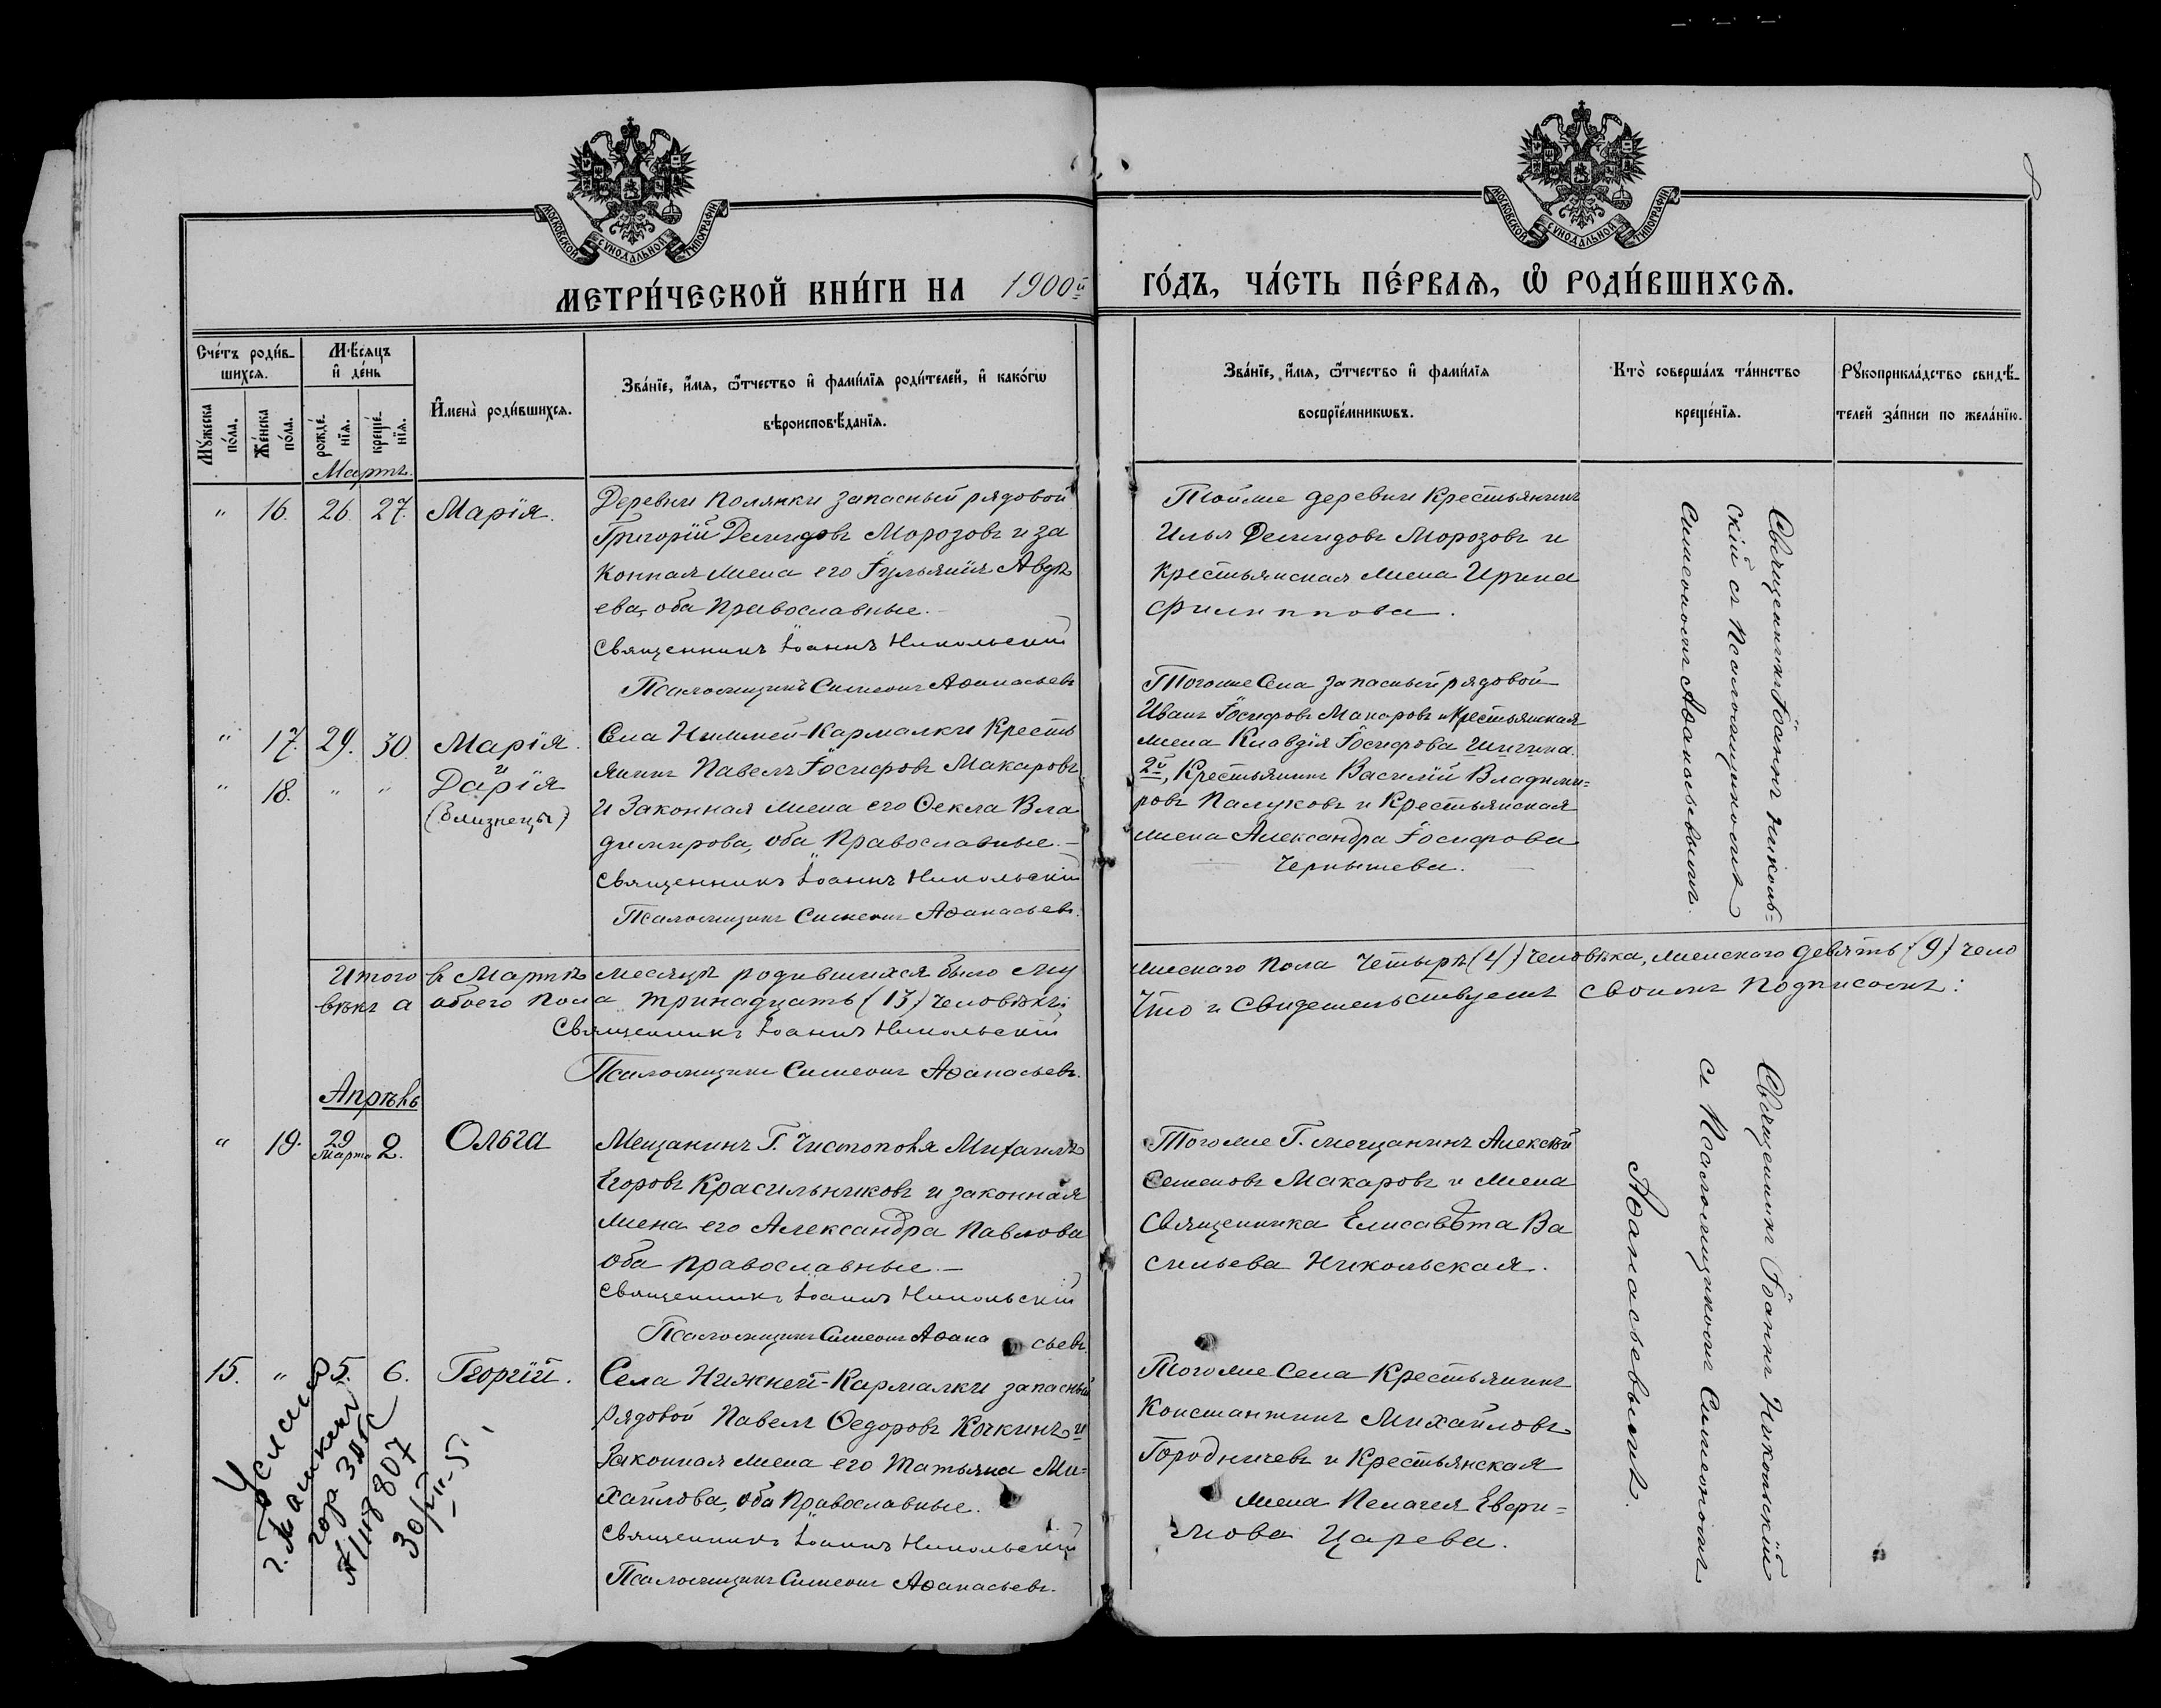 МОСКОВСКОЙ СѴНОДАЛЬНОЙ ТИПОГРАФІИ
МОСКОВСКОЙ СѴНОДАЛЬНОЙ ТИПОГРАФІИ
8
МЕТРИ́ЧЕСКОЙ КНИ́ГИ НА 1900й
ГО́ДЪ, ЧА́СТЬ ПЕ́РВАѦ, Ѡ҆ РОДИ́ВШИХСѦ.
Сче́тъ роди́в-
шихсѧ.
Мꙋ́жеска
по́ла.
Же́нска
по́ла.
Мѣ́сѧцъ
и҆ де́нь
рожде́-
нїѧ.
креще́-
нїѧ.
Мартъ.
И҆мена̀ роди́вшихсѧ.
Зва́нїе, и҆́мѧ, ѻ҆́тчество и҆ фами́лїѧ роди́телей, и҆ како́гѡ
вѣроисповѣ́данїѧ.
Зва́нїе, и҆́мѧ, ѻ҆́тчество и҆ фами́лїѧ
воспрїе́мникѡвъ.
Кто̀ соверша́лъ та́инство
креще́нїѧ.
Рꙋкоприкла́дство свидѣ́-
телей за́писи по жела́нїю.
" 16. 26. 27. Марія.
Деревни Полянки запасный рядовой
Григорій Демидовъ Морозовъ и за
конная жена его Іульянія Авдѣ
ева, оба Православные.
Священникъ Іоаннъ Никольскій
Псаломщикъ Симеонъ Аѳанасьевъ
Тойже деревни Крестьянинъ
Илья Демидовъ Морозовъ и
крестьянская жена Ирина
Филиппова.
Священникъ Іоаннъ Николь=
скій съ Псаломщикомъ
Симеономъ Аѳанасьевымъ.
" 17. 29. 30. Марія.
и
" 18. " " Дарія
(близнецы)
Села Нижней-Кармалки Кресть
янинъ Павелъ Іосифовъ Макаровъ
и Законная жена его Ѳекла Вла
димирова, оба Православные.—
Священникъ Іоаннъ Никольскій
Псаломщикъ Симеонъ Аѳанасьевъ.
Тогоже Села запасный рядовой
Иванъ Іосифовъ Макаровъ и Крестьянская
жена Клавдія Іосифова Шигина.
2й, Крестьянинъ Василій Владими=
ровъ Палуковъ и Крестьянская
жена Александра Іосифова
Чернышева.
Итого въ Мартѣ месяцѣ родившихся было му
жескаго пола четырѣ (4) человѣка, женскаго девять (9) чело
вѣкъ а обоего пола тринадцать (13) человѣкъ,
Что и Свидетельствуемъ своимъ подписомъ:
Священникъ Іоаннъ Никольскій
Псаломщикъ Симеонъ Аѳанасьевъ.
Апрѣль
" 19. 29 Марта 2. Ольга
Мещанинъ Г. Чистополя Михаилъ
Егоровъ Красильниковъ и законная
жена его Александра Павлова
оба православные.—
Священникъ Іоаннъ Никольскій
Псаломщикъ Симеонъ Аѳанасьевъ.
Тогоже Г. мещанинъ Алексѣй
Семеновъ Макаровъ и жена
Священника Елисавѣта Ва
сильева Никольская.
Священникъ Іоаннъ Никольскій
съ Псаломщикомъ Симеономъ
Аѳанасьевымъ.
15. " 5. 6. Георгій.
Села Нижней-Кармалки запасный
рядовой Павелъ Ѳедоровъ Кочкинъ и
Законная жена его Татьяна Ми=
хайлова, оба Православные.
Священникъ Іоаннъ Никольскій
Псаломщикъ Симеонъ Аѳанасьевъ.
Тогоже Села Крестьянинъ
Константинъ Михайловъ
Городничевъ и Крестьянская
жена Пелагея Евфи=
мова Царева.
г. Ташкент
гор ЗАГС